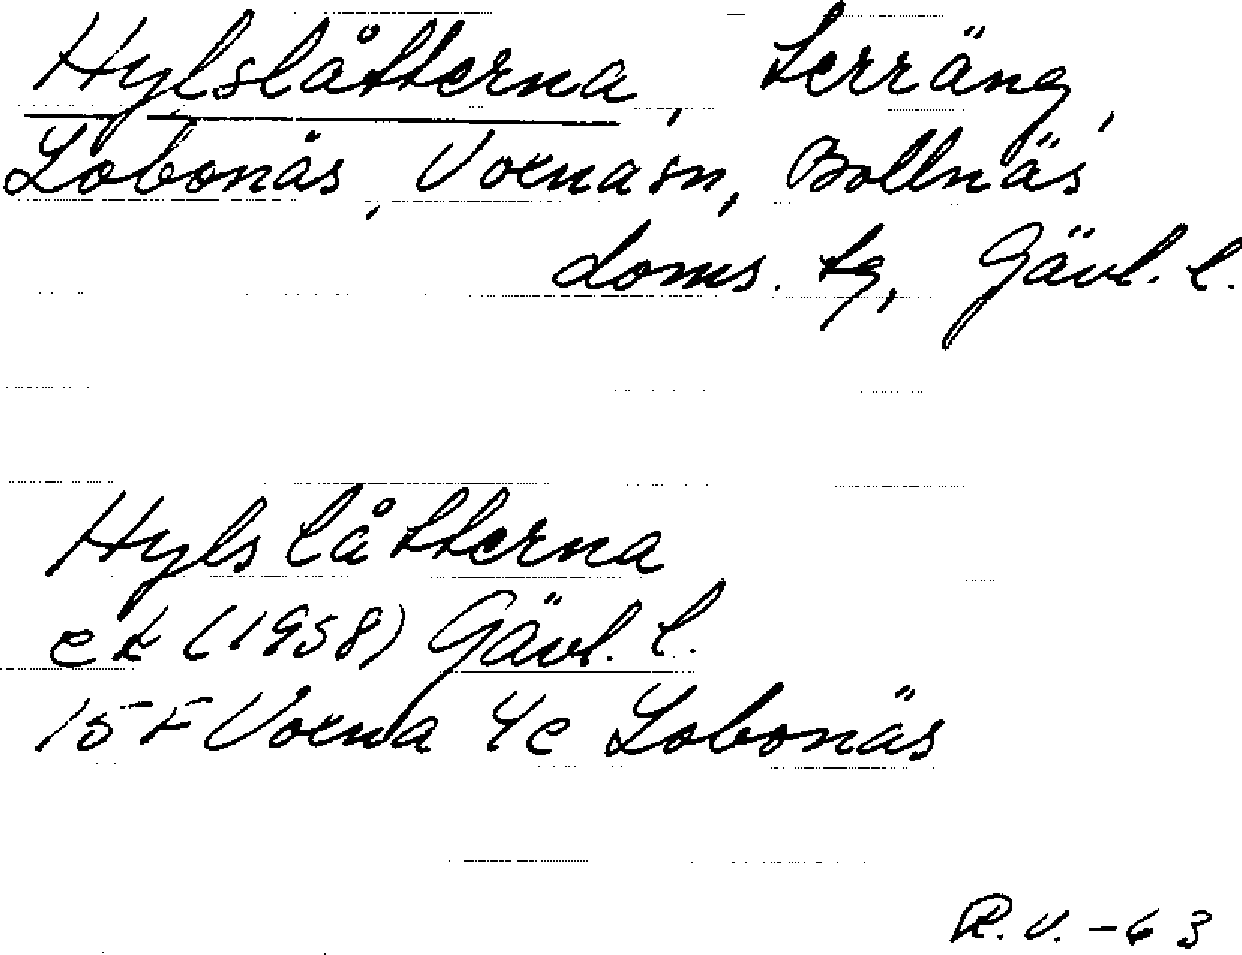 Hylslåtterna, terräng,
Lobonäs, Voxna sn, Bollnäs
doms. tg, Gävl. l.
Hylslåtterna
ek (1958) Gävl. l.
15 F Voxna 4c Lobonäs
R.V. -63